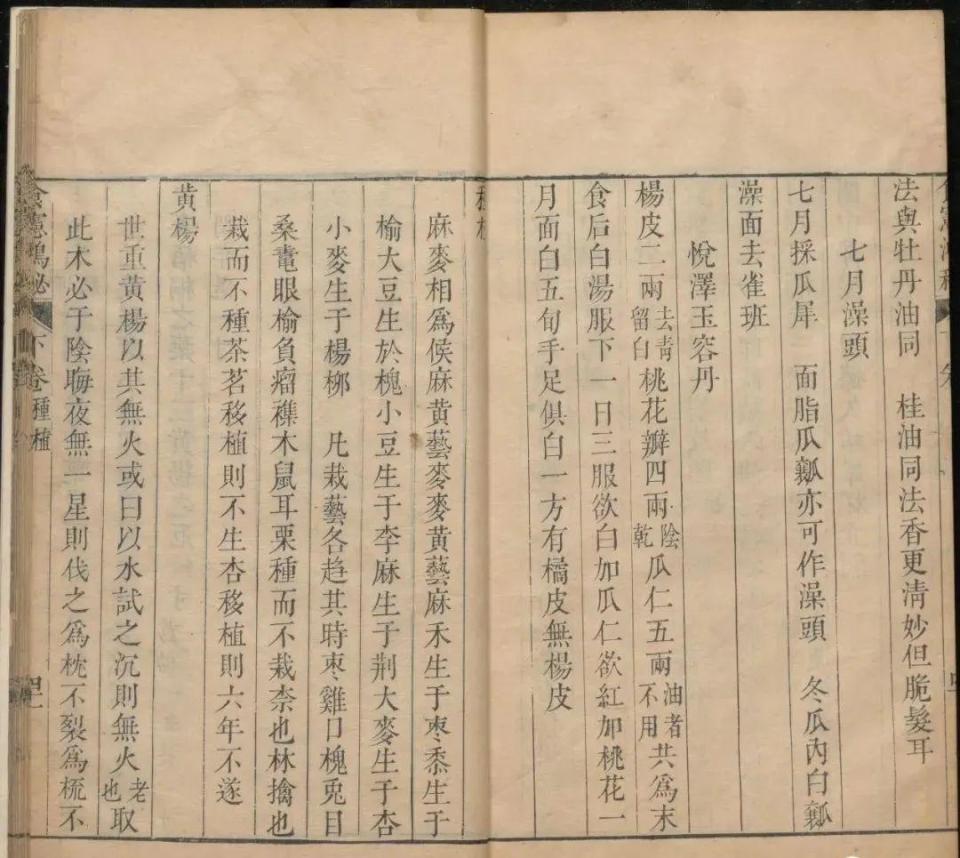 法與牡丹油同　桂油同法香更清妙但脆髮耳
七月澡頭
七月採瓜犀　面脂瓜瓤亦可作澡頭　冬瓜內白瓤
澡面去雀班
悅澤玉容丹
楊皮二兩去青留白桃花瓣四兩陰乾瓜仁五兩油者不用共爲末
食后白湯服下一日三服欲白加瓜仁欲紅加桃花一
月面白五旬手足俱白一方有橘皮無楊皮
種植
麻麥相爲候麻黃藝麥麥黃藝麻禾生于枣黍生于
榆大豆生於槐小豆生于李麻生于荆大麥生于杏
小麥生于楊栁　凡栽藝各趋其時枣雞口槐兎目
桑鼃眼榆負瘤襍木鼠耳栗種而不栽柰也林擒也
栽而不種茶茗移植則不生杏移植則六年不遂
黄楊
世重黄楊以其無火或曰以水試之沉則無火老也取
此木必于陰晦夜無一星則伐之爲枕不裂爲梳不
食憲鴻秘　下卷種植